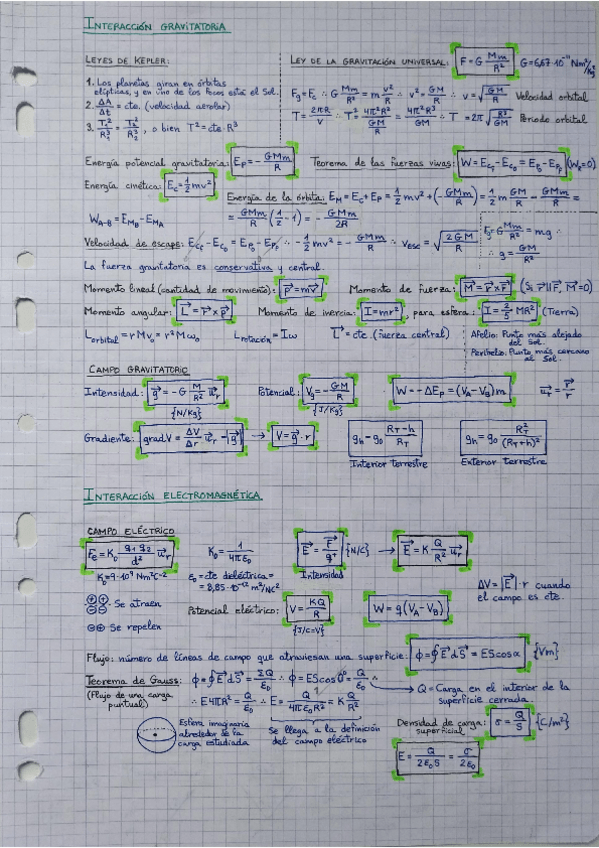 INTERACCIÓN GRAVITATORIA
LEYES DE KEPLER:
1. Los planetas giran en órbitas
elípticas, y en uno de los focos está el Sol.
2. ΔA/Δt = cte. (velocidad aerolar)
3. T₁²/R₁³ = T₂²/R₂³, o bien T² = cte·R³
LEY DE LA GRAVITACIÓN UNIVERSAL: F = G Mm/R² G = 6,67·10⁻¹¹ Nm²/kg²
Fg = Fc ∴ G Mm/R² = m v²/R ∴ v² = GM/R ∴ v = √(GM/R) Velocidad orbital
T = 2πR/v ∴ T² = 4π²R²/(GM/R) = 4π²R³/GM ∴ T = 2π √(R³/GM) Periodo orbital
Energía potencial gravitatoria: Ep = - GMm/R
Teorema de las fuerzas vivas: W = Ecf - Ec₀ = Ep₀ - Epf
Energía cinética: Ec = 1/2 mv²
Energía de la órbita: EM = Ec + Ep = 1/2 mv² + (- GMm/R) = 1/2 m GM/R - GMm/R =
= GMm/R (1/2 - 1) = - GMm/2R
W A-B = EMB - EMA
Fg = G Mm/R² = mg ∴
∴ g = GM/R²
Velocidad de escape: Ecf - Ec₀ = Ep₀ - Epf ∴ - 1/2 mv² = - GMm/R ∴ vesc = √(2GM/R)
La fuerza gravitatoria es conservativa y central.
Momento lineal (cantidad de movimiento): p⃗ = mv⃗
Momento de fuerza: M⃗ = r⃗ × F⃗ (Si r⃗ ∥ F⃗, M⃗ = 0)
Momento angular: L⃗ = r⃗ × p⃗
Momento de inercia: I = mr², para esfera: I = 2/5 MR² (Tierra)
Lorbital = rmv₀ = r²mω₀
Lrotación = Iω
L⃗ = cte. (fuerza central)
Afelio: Punto más alejado
del Sol.
Perihelio: Punto más cercano
al Sol.
CAMPO GRAVITATORIO
Intensidad: g⃗ = - G M/R² u⃗r {N/kg}
Potencial: Vg = - GM/R {J/kg}
W = - ΔEp = (VA - VB)m
u⃗r = r⃗/r
Gradiente: grad.V = ΔV/Δr · u⃗r = -|g⃗| → V = g⃗·r
gh = g₀ (RT - h)/RT
Interior terrestre
gh = g₀ RT²/(RT + h)²
Exterior terrestre
INTERACCIÓN ELECTROMAGNÉTICA
CAMPO ELÉCTRICO
F⃗e = K₀ q₁ q₂/d² u⃗r
K₀ = 1/4πε₀
E⃗ = F⃗/q {N/C} → E⃗ = K Q/R² u⃗r
Intensidad
K₀ = 9·10⁹ Nm²C⁻²
ε₀ = cte dieléctrica =
= 8,85·10⁻¹² m²/NC²
ΔV = |E⃗|·r cuando
el campo es cte.
⊕⊕ ⊖⊖ Se atraen
⊕⊖ Se repelen
Potencial eléctrico: V = KQ/R {J/C=V}
W = q(VA - VB)
Flujo: número de líneas de campo que atraviesan una superficie: Φ = ∮E⃗dS⃗ = ES cosα {Vm}
Teorema de Gauss: Φ = ∮E⃗dS⃗ = ΣQ/ε₀ ∴ Φ = ES cos0° = Q/ε₀ ∴
(Flujo de una carga
puntual)
∴ E4πR² = Q/ε₀ ∴ E = Q/4πε₀R² = K Q/R²
Q = Carga en el interior de la
superficie cerrada.
Esfera imaginaria
alrededor de la
carga estudiada
Se llega a la definición
del campo eléctrico
Densidad de carga superficial: σ = Q/S {C/m²}
E = Q/2ε₀S = σ/2ε₀